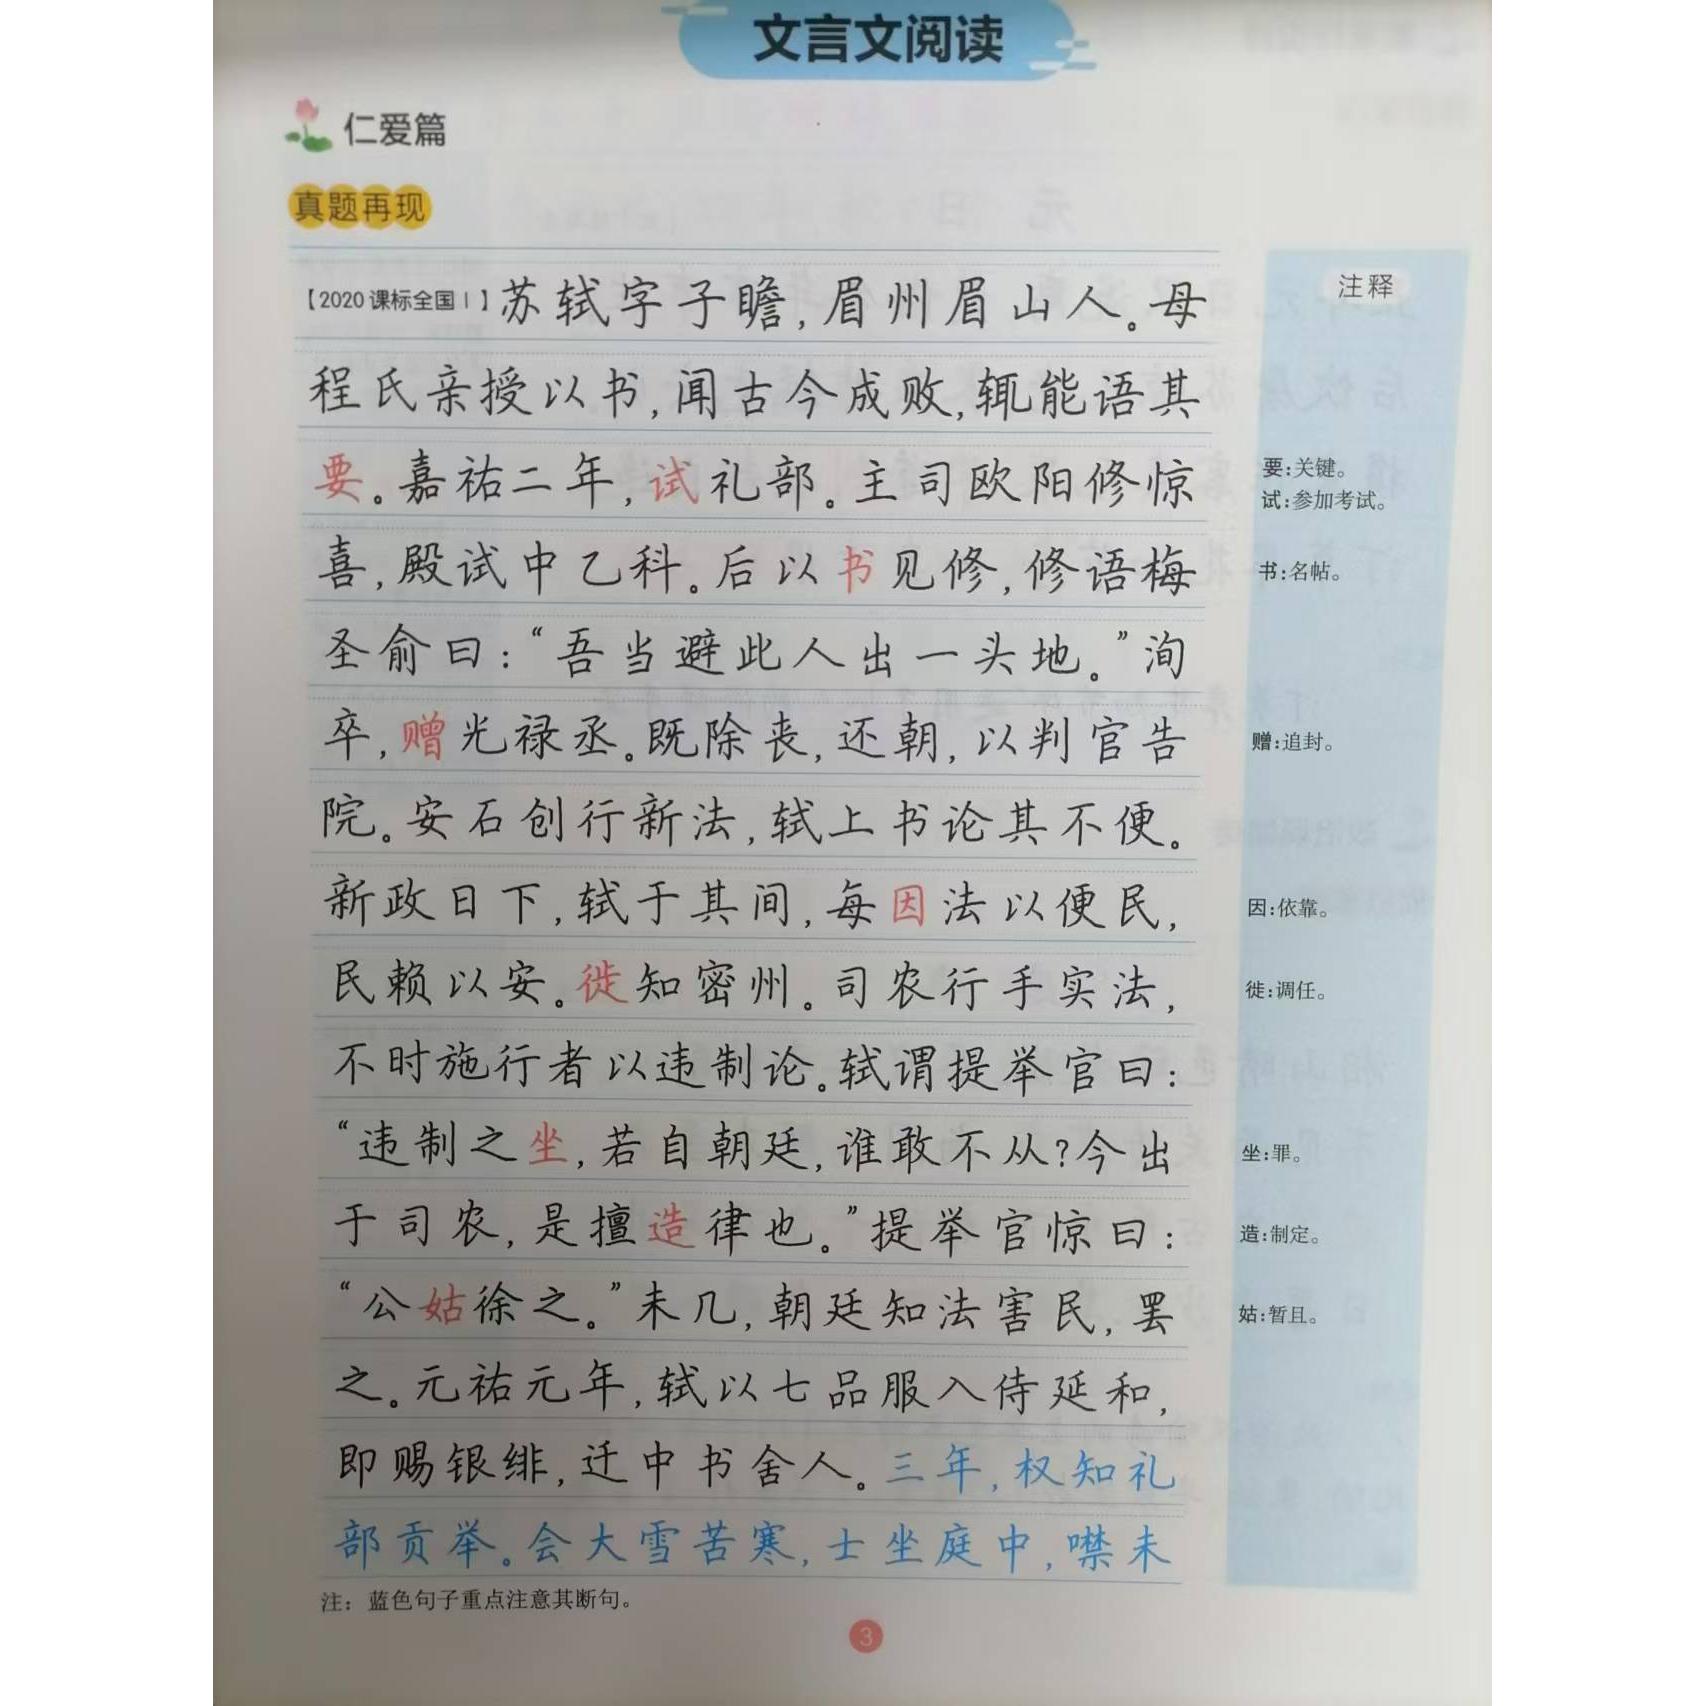 文言文阅读
仁爱篇
真题再现
【2020课标全国Ⅰ】苏轼字子瞻,眉州眉山人。母
程氏亲授以书,闻古今成败,辄能语其
要。嘉祐二年,试礼部。主司欧阳修惊
喜,殿试中乙科。后以书见修,修语梅
圣俞曰:“吾当避此人出一头地。”洵
卒,赠光禄丞。既除丧,还朝,以判官告
院。安石创行新法,轼上书论其不便。
新政日下,轼于其间,每因法以便民,
民赖以安。徙知密州。司农行手实法,
不时施行者以违制论。轼谓提举官曰:
“违制之坐,若自朝廷,谁敢不从?今出
于司农,是擅造律也。”提举官惊曰:
“公姑徐之。”未几,朝廷知法害民,罢
之。元祐元年,轼以七品服入侍延和,
即赐银绯,迁中书舍人。三年,权知礼
部贡举。会大雪苦寒,士坐庭中,噤未
注:蓝色句子重点注意其断句。
注释
要:关键。
试:参加考试。
书:名帖。
赠:追封。
因:依靠。
徙:调任。
坐:罪。
造:制定。
姑:暂且。
3